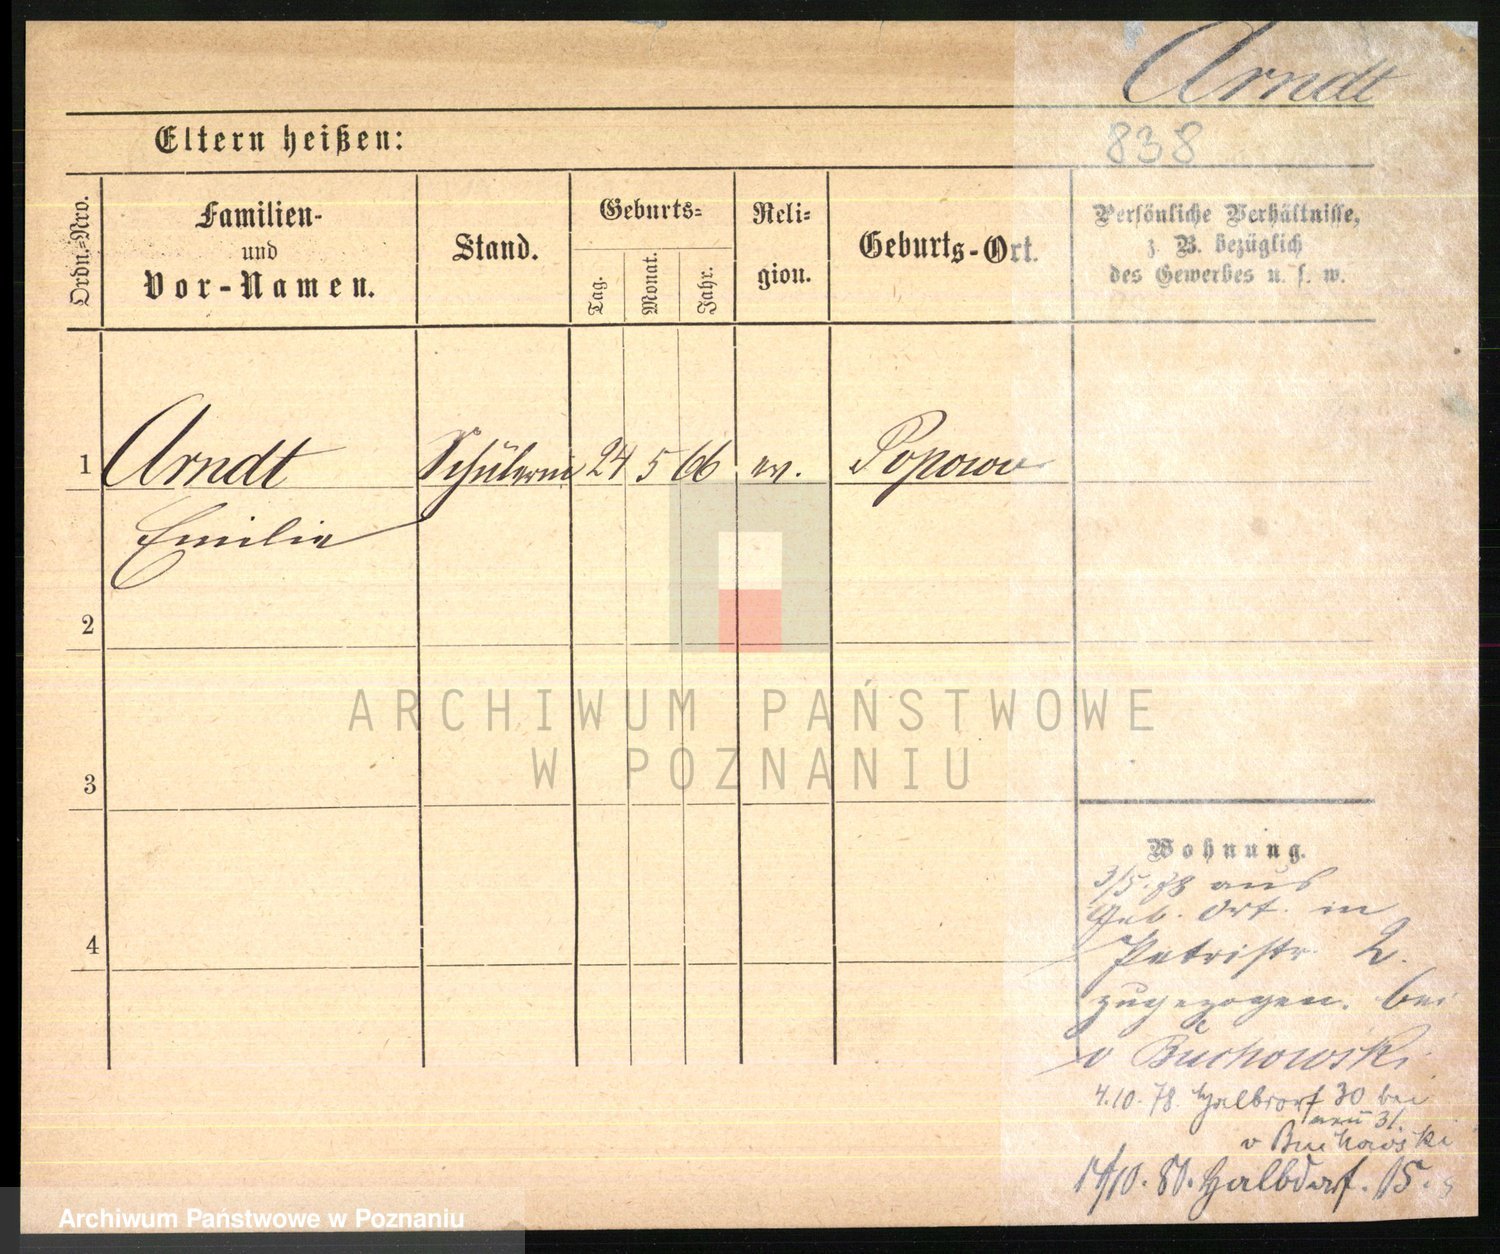 Arndt
838
Eltern heißen:
Ordn.=Nro.
Familien-
und
Vor-Namen.
Stand.
Geburts=
Tag.
Monat.
Jahr.
Reli=
gion.
Geburts-Ort.
Persönliche Verhältnisse,
z. B. bezüglich
des Gewerbes u. s. w.
1 Arndt Schülerin 24 5 66 ev. Popowo
Emilie
2
ARCHIWUM PAŃSTWOWE
W POZNANIU
3
Wohnung.
3/5. 78 aus
Geb. Ort. in
4
Petristr. 2.
zugezogen. bei
v Buchowski
4.10.78. Halbdorf 30 bei
neu 31.
v Buchowski
14/10. 80. Halbdorf. 15.
Archiwum Państwowe w Poznaniu